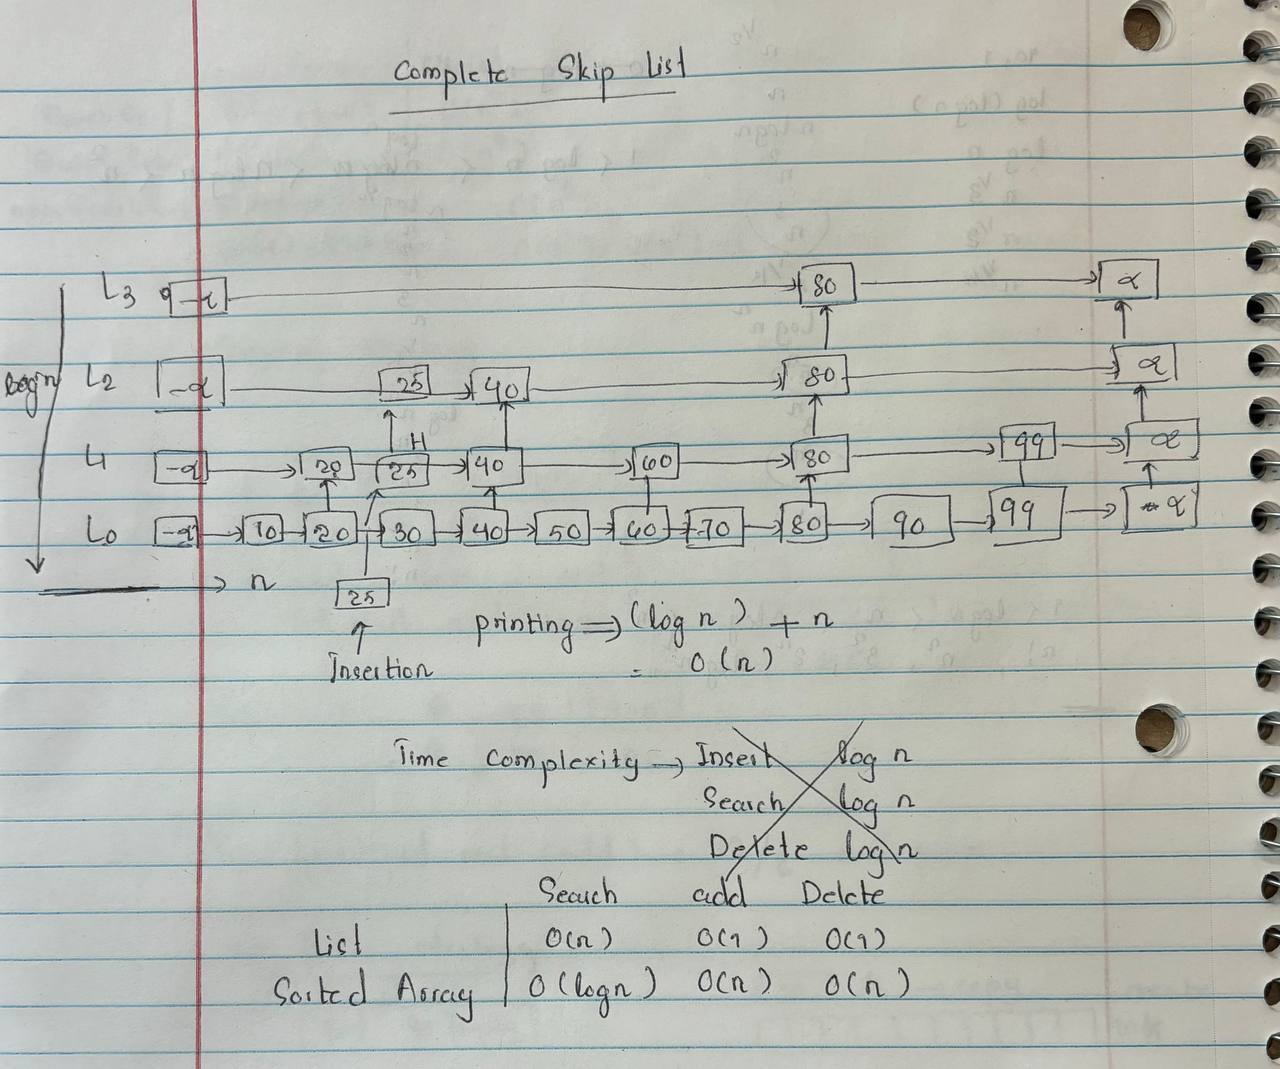 Complete Skip List
L3 -α 80 α
L2 -α 25 40 80 α
H
L1 -α 20 25 40 60 80 99 α
logn
L0 -α 10 20 30 40 50 60 70 80 90 99 α
n
25
printing ⇒ (log n) + n
Insertion = O(n)
Time Complexity → Insert log n
Search log n
Delete log n
Search add Delete
List O(n) O(1) O(1)
Sorted Array O(logn) O(n) O(n)